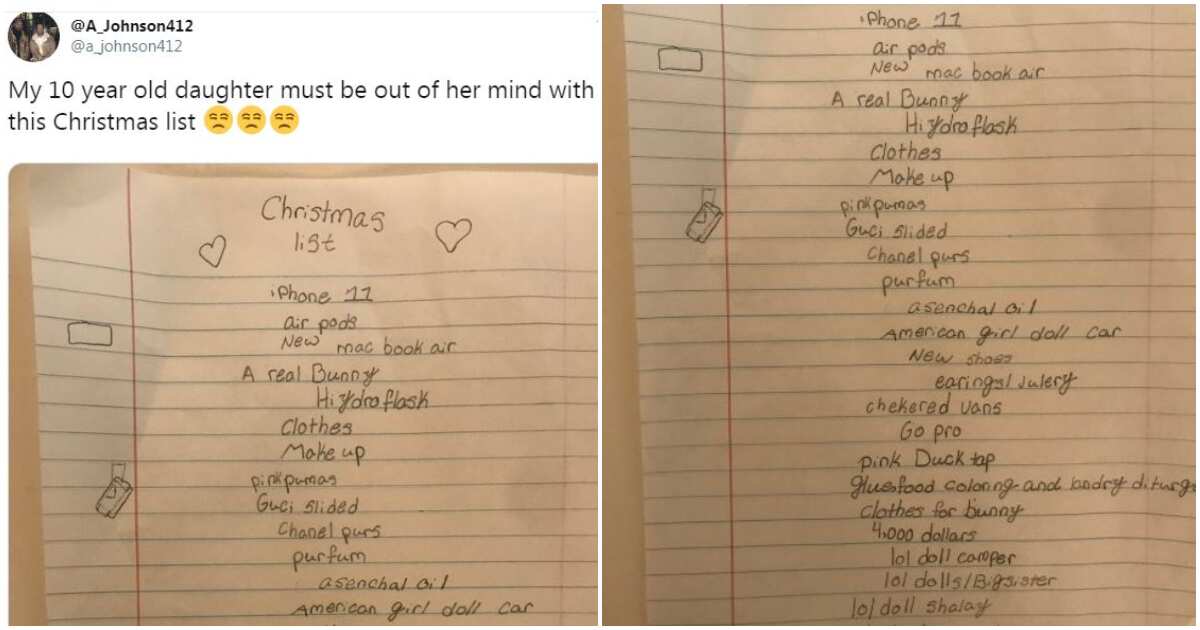 @A_Johnson412
@a_johnson412
My 10 year old daughter must be out of her mind with
this Christmas list 😒😒😒
Christmas
list
iPhone 11
air pods
New mac book air
A real Bunny
Hiydroflask
Clothes
Make up
pink pumas
Guci slided
Chanel purs
purfum
asenchal oil
American girl doll car
iPhone 11
air pods
New mac book air
A real Bunny
Hiydroflask
Clothes
Make up
pink pumas
Guci slided
Chanel purs
purfum
asenchal oil
American girl doll car
New shoes
earings/julery
chekered vans
Go pro
pink Duck tap
glue food coloring and
clothes for bunny
4,000 dollars
lol doll camper
lol dolls/Bigsister
lol doll shalay